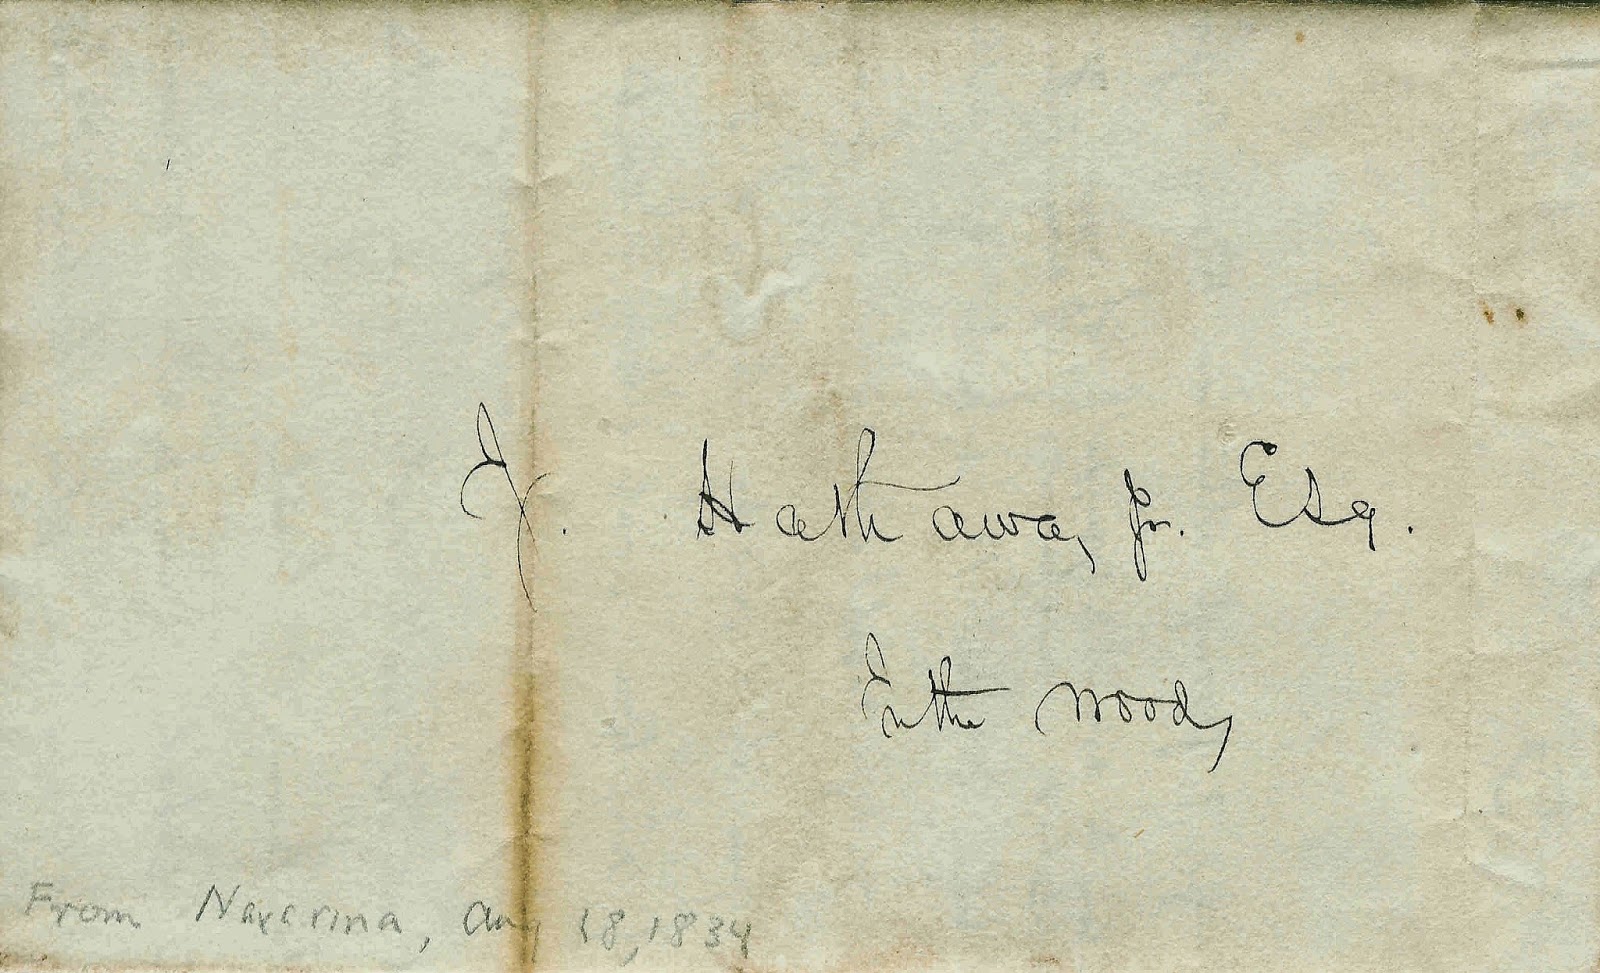 J. Hathaway Jr. Esq.
In the Woods
From Navarina, Aug 18, 1834